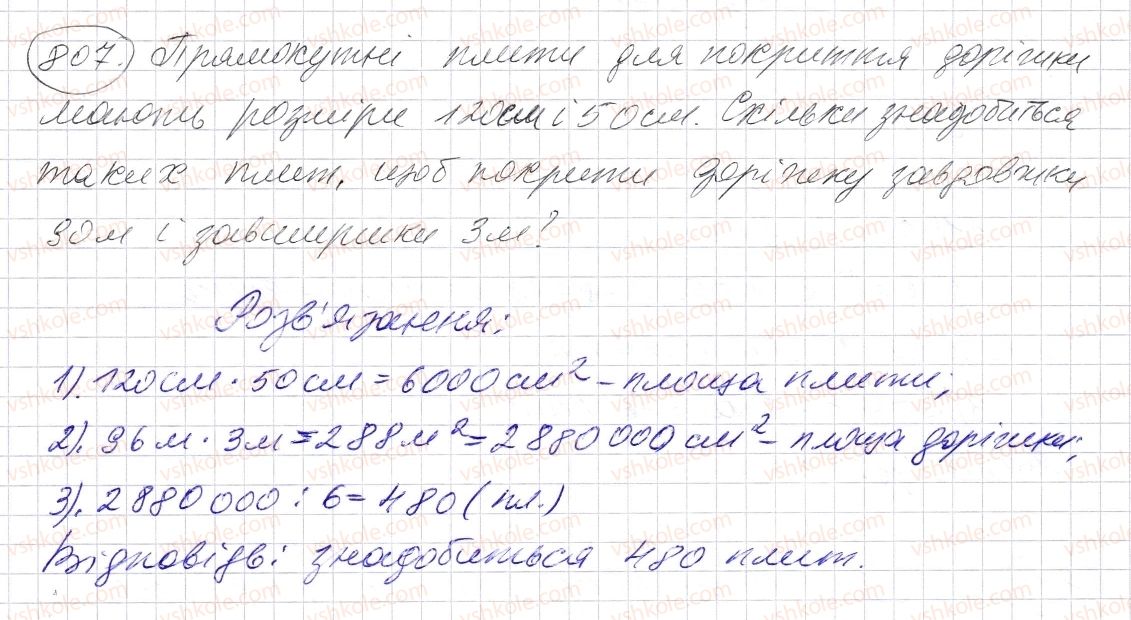 807. Прямокутні плити для покриття доріжки
мають розміри 120см і 50см. Скільки знадобиться
таких плит, щоб покрити доріжку завдовжки
90м і завширшки 3м?
Розв'язання:
1). 120см · 50см = 6000см² – площа плити;
2). 96м · 3м = 288м² = 2880000см² – площа доріжки;
3). 2880000 : 6 = 480 (пл.)
Відповідь: знадобиться 480 плит.